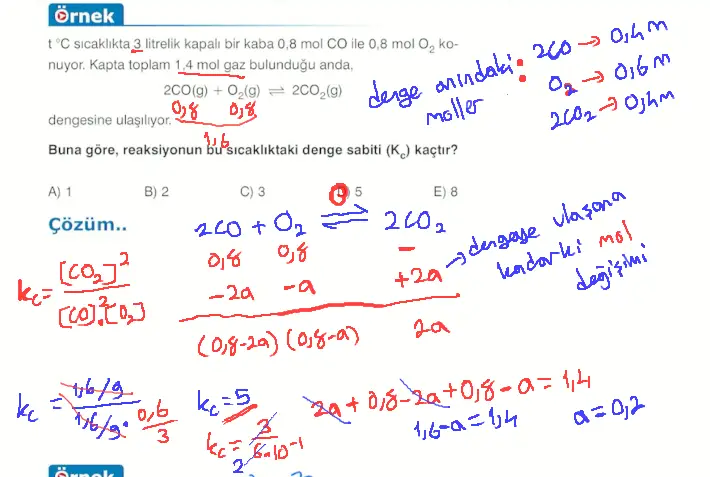 Örnek
t °C sıcaklıkta 3 litrelik kapalı bir kaba 0,8 mol CO ile 0,8 mol O₂ ko-
nuyor. Kapta toplam 1,4 mol gaz bulunduğu anda,
2CO(g) + O₂(g) ⇌ 2CO₂(g)
0,8 0,8
dengesine ulaşılıyor.
1,6
Buna göre, reaksiyonun bu sıcaklıktaki denge sabiti (K꜀) kaçtır?
A) 1 B) 2 C) 3 D) 5 E) 8
denge anındaki :
moller
2CO → 0,4 m
O₂ → 0,6 m
2CO₂ → 0,4m
Çözüm..
2CO + O₂ ⇌ 2CO₂
0,8 0,8 –
-2a -a +2a
(0,8-2a) (0,8-a) 2a
→ dengeye ulaşana
kadarki mol
değişimi
kc = [CO₂]² / [CO]².[O₂]
kc = 1,6/9 / 1,6/9 . 0,6/3
kc = 5
kc = 3 / 6.10⁻¹
2
2a + 0,8 - 2a + 0,8 - a = 1,4
1,6-a = 1,4
a = 0,2
Örnek